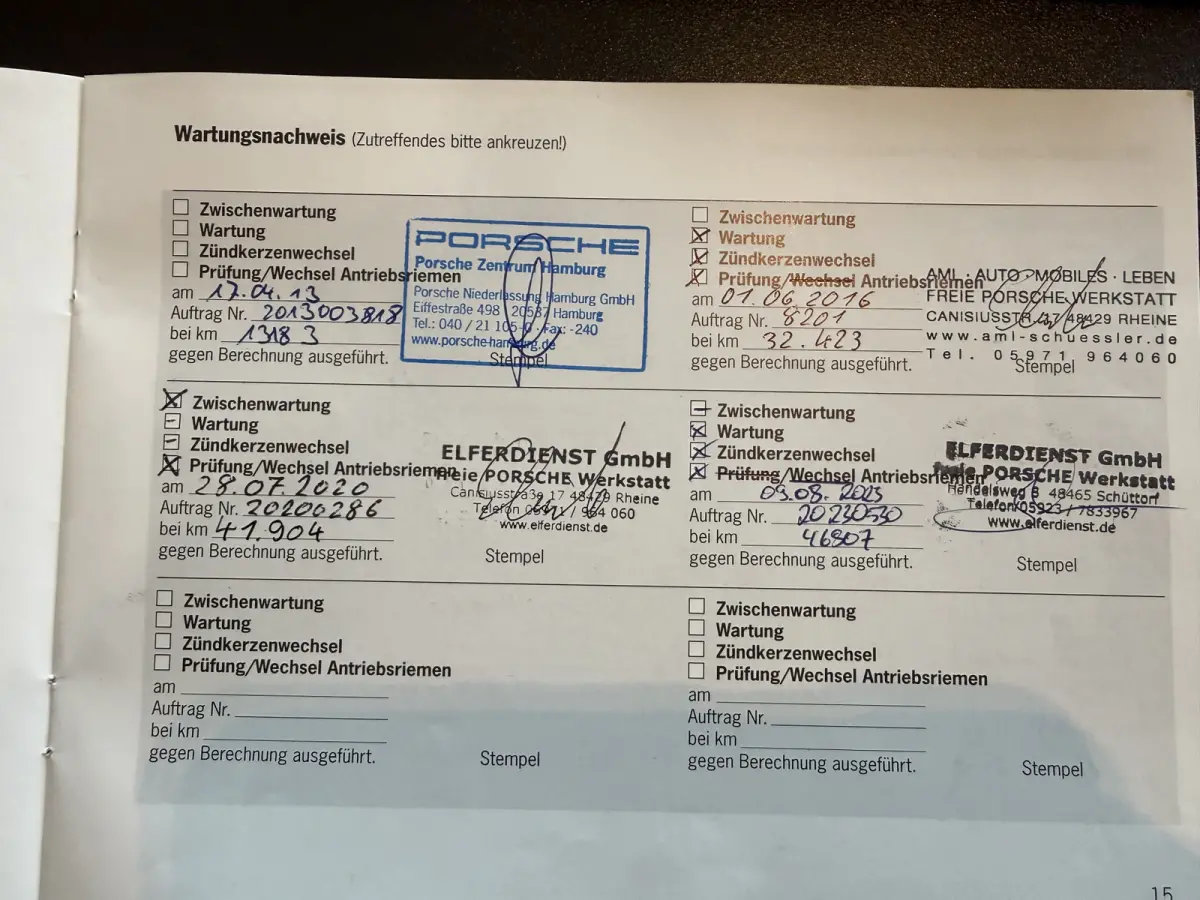 Wartungsnachweis (Zutreffendes bitte ankreuzen!)
Zwischenwartung
Wartung
Zündkerzenwechsel
Prüfung/Wechsel Antriebsriemen
am 17.04.13
Auftrag Nr. 2013003818
bei km 13183
gegen Berechnung ausgeführt.
PORSCHE
Porsche Zentrum Hamburg
Porsche Niederlassung Hamburg GmbH
Eiffestraße 498 20537 Hamburg
Tel.: 040 / 21 105-0 Fax: -240
www.porsche-hamburg.de
Stempel
Zwischenwartung
Wartung
Zündkerzenwechsel
Prüfung/Wechsel Antriebsriemen
am 01.06.2016
Auftrag Nr. 8201
bei km 32.423
gegen Berechnung ausgeführt.
AML · AUTO MOBILES · LEBEN
FREIE PORSCHE WERKSTATT
CANISIUSSTR. 17 48429 RHEINE
www.aml-schuessler.de
Tel. 05971 964060
Stempel
Zwischenwartung
Wartung
Zündkerzenwechsel
Prüfung/Wechsel Antriebsriemen
am 28.07.2020
Auftrag Nr. 20200286
bei km 41.904
gegen Berechnung ausgeführt.
ELFERDIENST GmbH
freie PORSCHE Werkstatt
Canisiusstraße 17 48429 Rheine
Telefon / 964 060
www.elferdienst.de
Stempel
Zwischenwartung
Wartung
Zündkerzenwechsel
Prüfung/Wechsel Antriebsriemen
am 09.08.2023
Auftrag Nr. 20230530
bei km 46807
gegen Berechnung ausgeführt.
ELFERDIENST GmbH
freie PORSCHE Werkstatt
Händelsweg 6 48465 Schüttorf
Telefon 05923 / 7833967
www.elferdienst.de
Stempel
Zwischenwartung
Wartung
Zündkerzenwechsel
Prüfung/Wechsel Antriebsriemen
am
Auftrag Nr.
bei km
gegen Berechnung ausgeführt.
Stempel
Zwischenwartung
Wartung
Zündkerzenwechsel
Prüfung/Wechsel Antriebsriemen
am
Auftrag Nr.
bei km
gegen Berechnung ausgeführt.
Stempel
15